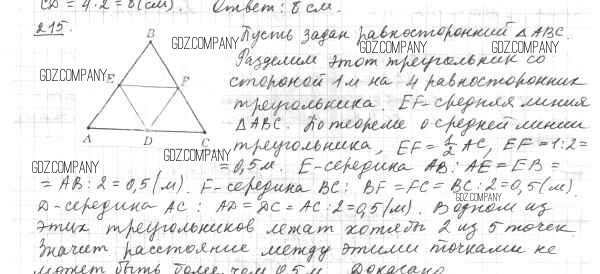 CD = 4·2 = 8 (см). Ответ: 8 см.
215.
Пусть задан равносторонний △ABC.
GDZ.COMPANY GDZ.COMPANY GDZ.COMPANY
Разделим этот треугольник со
GDZ.COMPANY
стороной 1 м на 4 равносторонних
треугольника. EF - средняя линия
△ABC. По теореме о средней линии
треугольника, EF = 1/2 AC, EF = 1:2=
B
E
F
A
D
C
GDZ.COMPANY
GDZ.COMPANY
= 0,5 м. E - середина AB: AE = EB =
= AB : 2 = 0,5 (м). F - середина BC: BF = FC = BC : 2 = 0,5 (м).
GDZ.COMPANY
D - середина AC: AD = DC = AC : 2 = 0,5 (м). В одном из
этих треугольников лежат хотябы 2 из 5 точек.
Значит расстояние между этими точками не
может быть более, чем 0,5 м. Доказано